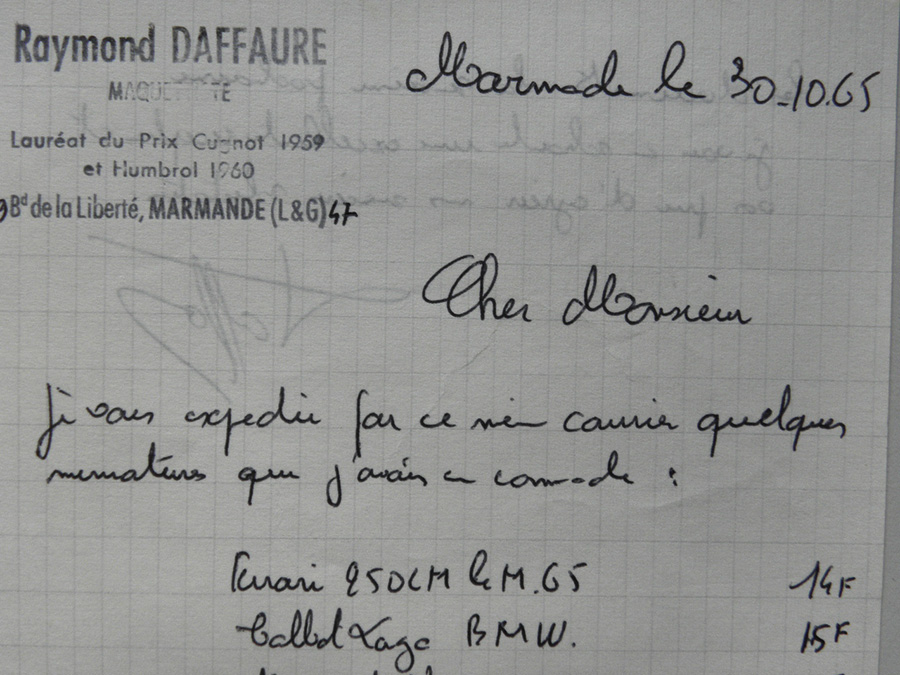 Raymond DAFFAURE
MAQUETTISTE
Lauréat du Prix Cugnot 1959
et Humbrol 1960
9 Bd de la Liberté, MARMANDE (L&G) 47
Marmade le 30.10.65
Cher Monsieur
Je vous expedie par ce mêm courrier quelques
miniatures que j'avais en commade :
Ferrari 250LM le M.65 14F
Talbot Lago BMW. 15F